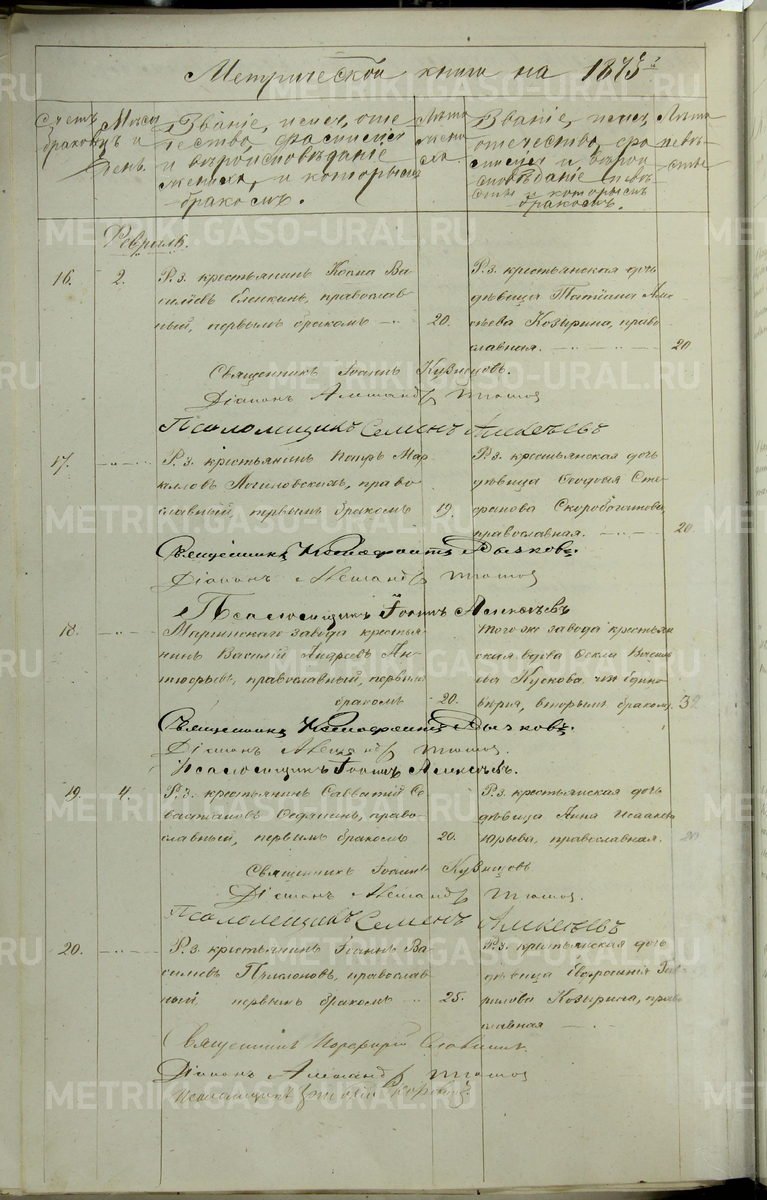 Метрической книги на 1875 г.
Счетъ браковъ
Мѣсяцъ и день.
Званіе, имя, отчество, фамилія и вѣроисповѣданіе жениха, и которымъ бракомъ.
Лѣта жениха.
Званіе, имя, отчество, фамилія и вѣроисповѣданіе невѣсты и которымъ бракомъ.
Лѣта невѣсты
Февраль.
16. 2. Р. з. крестьянинъ Косма Ва-
сильевъ Блонкинъ, православ-
ный, первымъ бракомъ 20.
Р. з. крестьянская дочь
дѣвица Татіана
Козырина, право-
славная. 20
Священникъ Іоаннъ Кузнецовъ.
Діаконъ Александръ
Псаломщикъ Семенъ Алексѣевъ
17. Р. з. крестьянинъ Мар-
келловъ право-
славный, первымъ бракомъ 19.
Р. з. крестьянская дочь
дѣвица Ѳеодосія Сте-
фанова Скоробогатова,
православная. 20.
Священникъ Дьячковъ.
Діаконъ Александръ
Псаломщикъ Іоаннъ Алексѣевъ
18. Маріинскаго завода крестья-
нинъ Василій Андреевъ Ан-
цюрьевъ, православный, первымъ
бракомъ 20.
того же завода крестьян
ская вдова Ѳекла Василь
ева Кускова, едино
вѣрія, вторымъ бракомъ. 32
Священникъ Дьячковъ.
Діаконъ Александръ
Псаломщикъ Іоаннъ Алексѣевъ.
19. 4. Р. з. крестьянинъ Савватій Се-
вастьяновъ право-
славный, первымъ бракомъ 20.
Р. з. крестьянская дочь
дѣвица Анна Исаакова
Юрьева, православная. 20
Священникъ Іоаннъ Кузнецовъ
Діаконъ Александръ
Псаломщикъ Семенъ Алексѣевъ
20. Р. з. крестьянинъ Іоаннъ Ва-
сильевъ православ-
ный первымъ бракомъ 25.
Р. з. крестьянская дочь
дѣвица Евфросинія Гав-
рилова Козырина, право
славная
Священникъ Порфирій Славнинъ.
Діаконъ Александръ
Псаломщикъ
METRIKI.GASO-URAL.RU